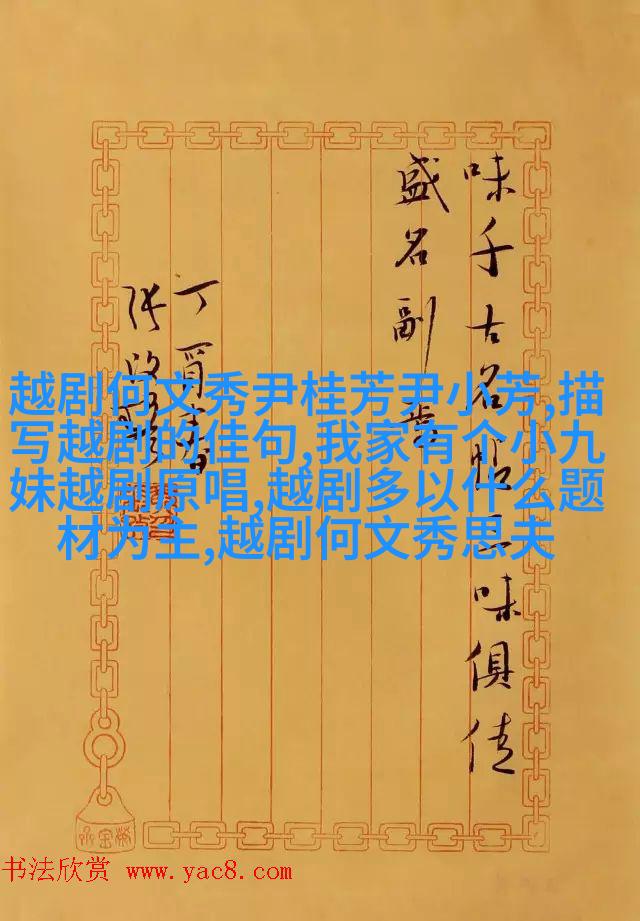 味千古名二味俱佳
盛名副
丁酉
张
越剧何文秀尹桂芳尹小芳,描
写越剧的佳句,我家有个小九
妹越剧原唱,越剧多以什么题
材为主,越剧何文秀思夫
书法欣赏 www.yac8.com